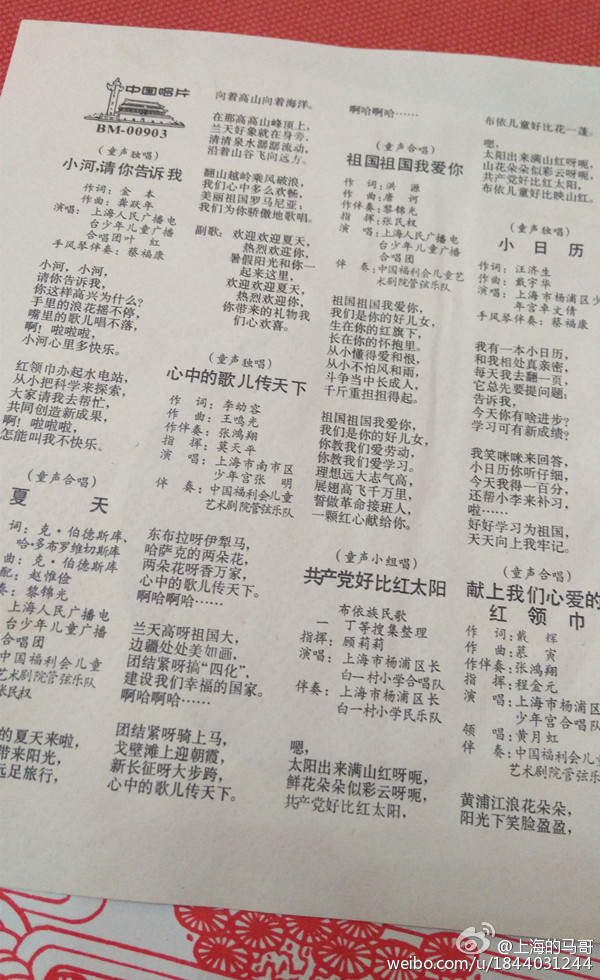 中国唱片
BM-00903
(童声独唱)
小河,请你告诉我
作词:金本
作曲:龚跃年
演唱:上海人民广播电
台少年儿童广播
合唱团叶红
手风琴伴奏:蔡福康
小河,小河,
请你告诉我,
你这样高兴为什么?
手里的浪花摇不停,
嘴里的歌儿唱不落,
啊!啦啦啦,
小河心里多快乐。
红领巾办起水电站,
从小把科学来探索,
大家请我去帮忙,
共同创造新成果,
啊!啦啦啦,
怎能叫我不快乐。
(童声合唱)
夏天
词:克·伯德斯库、
哈·多布罗维切斯库
曲:克·伯德斯库
配:赵惟俭
奏:黎锦光
上海人民广播电
台少年儿童广播
合唱团
中国福利会儿童
艺术剧院管弦乐队
张民权
的夏天来啦,
带来阳光,
远足旅行,
向着高山向着海洋。
在那高高山峰顶上,
兰天好象就在身旁,
清清泉水潺潺流动,
沿着山谷飞向远方。
翻山越岭乘风破浪,
我们心中多么欢畅;
美丽祖国罗马尼亚;
我们为你骄傲地歌唱。
副歌:欢迎欢迎夏天,
热烈欢迎你,
暑假阳光和你一
起来这里,
欢迎欢迎夏天,
热烈欢迎你,
你带来的礼物我
们心欢喜。
(童声独唱)
心中的歌儿传天下
作词:李幼容
作曲:王鸣光
作伴奏:张鸿翔
指挥:莫天平
演唱:上海市南市区
少年宫张明
伴奏:中国福利会儿童
艺术剧院管弦乐队
东布拉呀伊犁马,
哈萨克的两朵花,
两朵花呀香万家,
心中的歌儿传天下。
啊哈啊哈……
兰天高呀祖国大,
边疆处处美如画,
团结紧呀搞“四化”,
建设我们幸福的国家。
啊哈啊哈……
团结紧呀骑上马,
戈壁滩上迎朝霞,
新长征呀大步跨,
心中的歌儿传天下。
啊哈啊哈……
(童声合唱)
祖国祖国我爱你
作词:洪源
作曲:唐诃
作伴奏:黎锦光
指挥:张民权
演唱:上海人民广播电
台少年儿童广播
合唱团
伴奏:中国福利会儿童艺
术剧院管弦乐队
祖国祖国我爱你,
我们是你的好儿女,
生在你的红旗下,
长在你的怀抱里。
从小懂得爱和恨,
从小不怕风和雨,
斗争当中长成人,
千斤重担担得起。
祖国祖国我爱你,
我们是你的好儿女,
你教我们爱劳动,
你教我们爱学习。
理想远大志气高,
展翅高飞千万里,
誓做革命接班人,
一颗红心献给你。
(童声小组唱)
共产党好比红太阳
布依族民歌
一丁等搜集整理
指挥:顾莉莉
演唱:上海市杨浦区长
白一村小学合唱队
伴奏:上海市杨浦区长
白一村小学民乐队
嗯,
太阳出来满山红呀呃,
鲜花朵朵似彩云呀呃,
共产党好比红太阳,
布依儿童好比花一蓬。
嗯,
太阳出来满山红呀呃,
山花朵朵似彩云呀呃,
共产党好比红太阳,
布依儿童好比映山红。
(童声独唱)
小日历
作词:汪济生
作曲:戴宇华
演唱:上海市杨浦区少
年宫卓文倩
手风琴伴奏:蔡福康
我有一本小日历,
和我相处真亲密,
每天我去翻一页,
它总先要提问题:
告诉我,
今天你有啥进步?
学习可有新成绩?
我笑咪咪来回答,
小日历你听仔细,
今天我得一百分,
还帮小李来补习,
啦……
好好学习为祖国,
天天向上我牢记。
(童声合唱)
献上我们心爱的
红领巾
作词:戴辉
作曲:慕寅
作伴奏:张鸿翔
指挥:程金元
演唱:上海市杨浦区
少年宫合唱队
领唱:黄月虹
伴奏:中国福利会儿童
艺术剧院管弦乐
黄浦江浪花朵朵,
阳光下笑脸盈盈,
@上海的马哥
weibo.com/u/1844031244